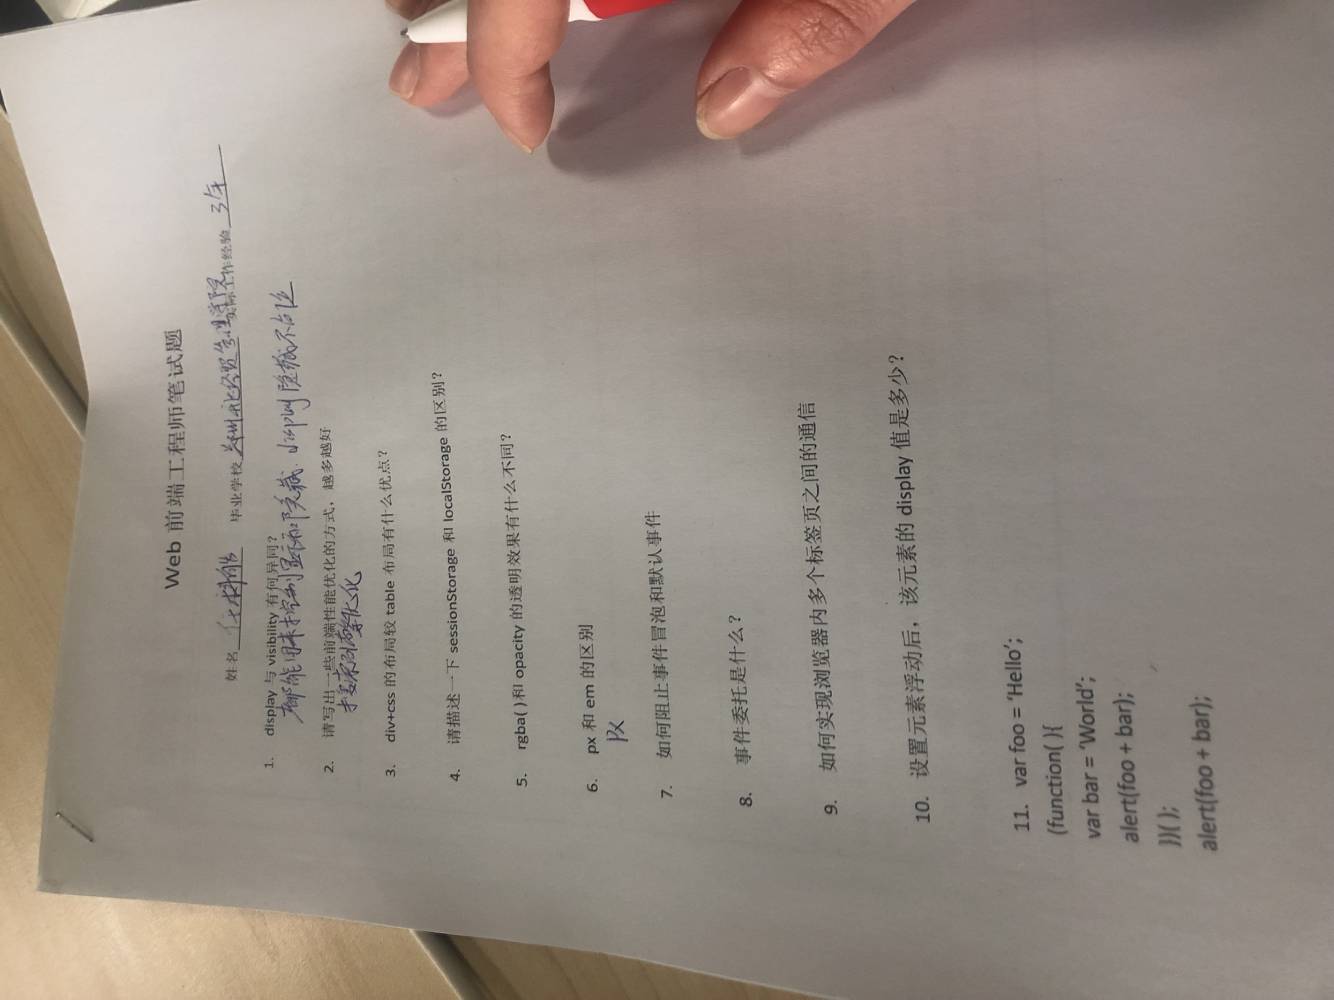 Web 前端工程师笔试题
姓名 毕业学校 实际工作经验 3年
1. display 与 visibility 有何异同？
都能用来控制显示和隐藏. display 隐藏不占位
2. 请写出一些前端性能优化的方式，越多越好
搜索引擎优化
3. div+css 的布局较 table 布局有什么优点？
4. 请描述一下 sessionStorage 和 localStorage 的区别？
5. rgba( )和 opacity 的透明效果有什么不同？
6. px 和 em 的区别
px
7. 如何阻止事件冒泡和默认事件
8. 事件委托是什么？
9. 如何实现浏览器内多个标签页之间的通信
10. 设置元素浮动后，该元素的 display 值是多少？
11. var foo = ‘Hello’;
(function( ){
var bar = ‘World’;
alert(foo + bar);
})( );
alert(foo + bar);